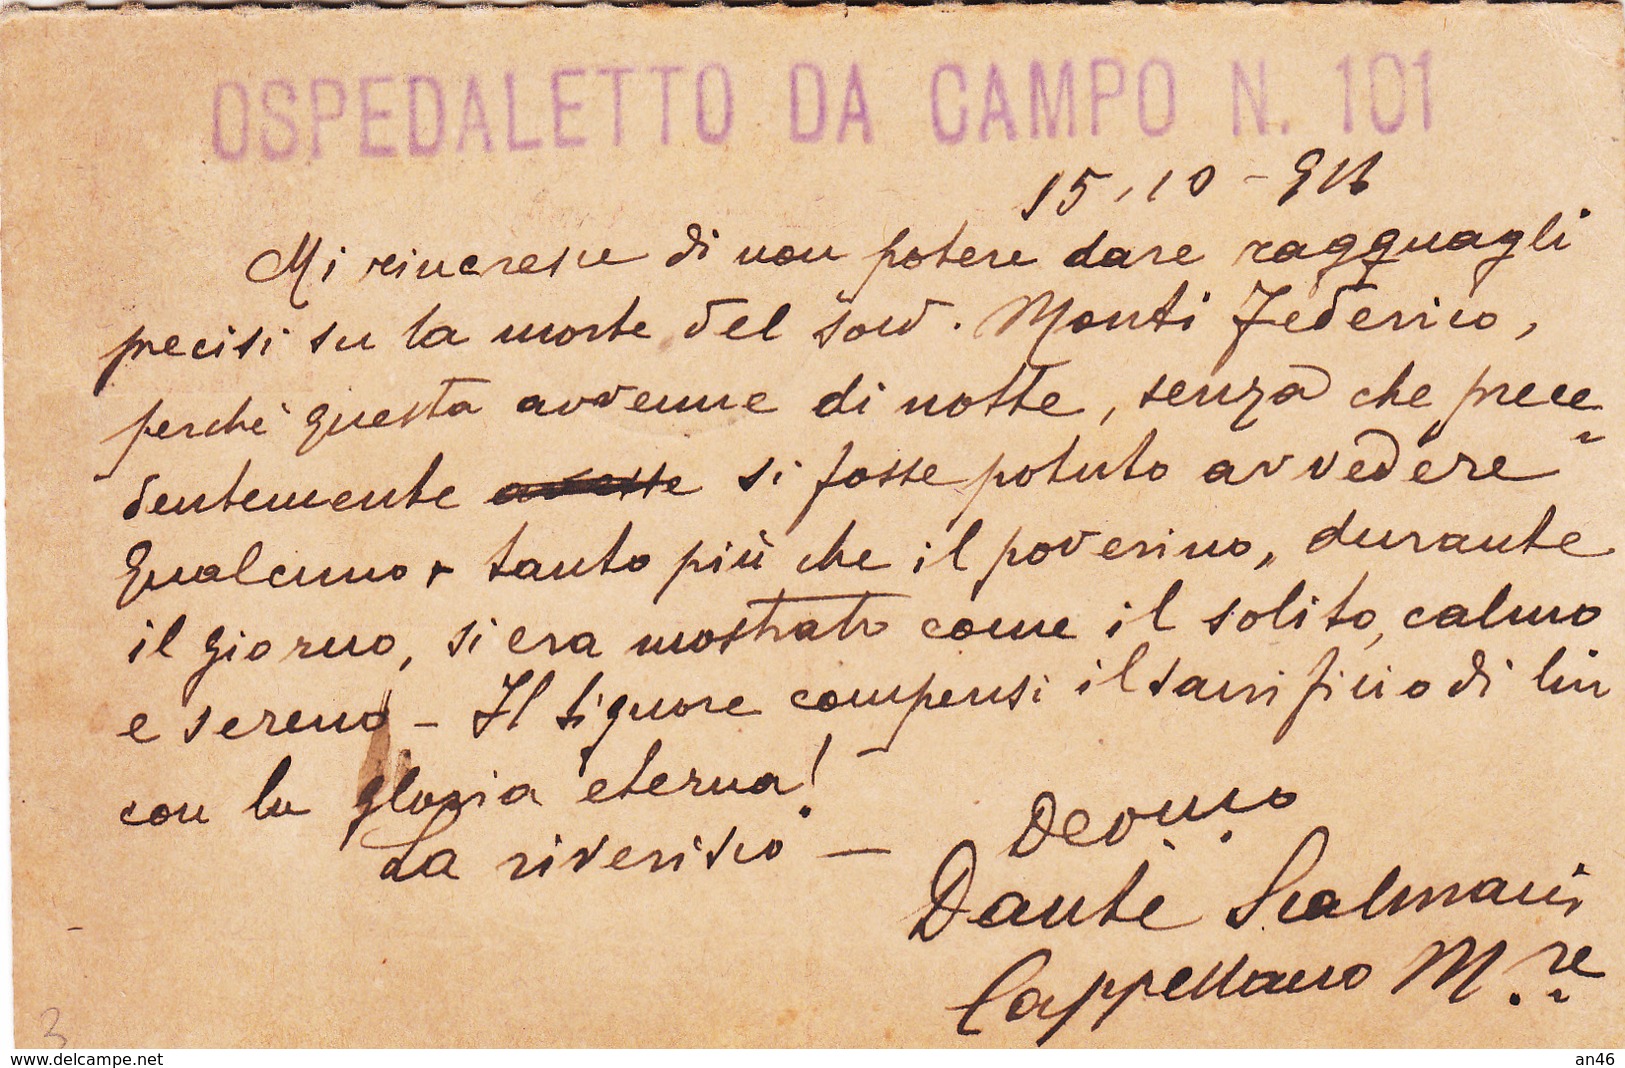 OSPEDALETTO DA CAMPO N. 101
15.10-916
Mi rincresce di non potere dare ragguagli
precisi su la morte del sold. Monti Federico,
perchè questa avvenne di notte, senza che prece
dentemente avesse si fosse potuto avvedere
qualcuno, tanto più che il poverino, durante
il giorno, si era mostrato come il solito, calmo
e sereno - Il Signore compensi il sacrificio di lui
con la gloria eterna!
La riverisco - Dev.mo
Dante
Cappellano M.re
3
www.delcampe.net
an46